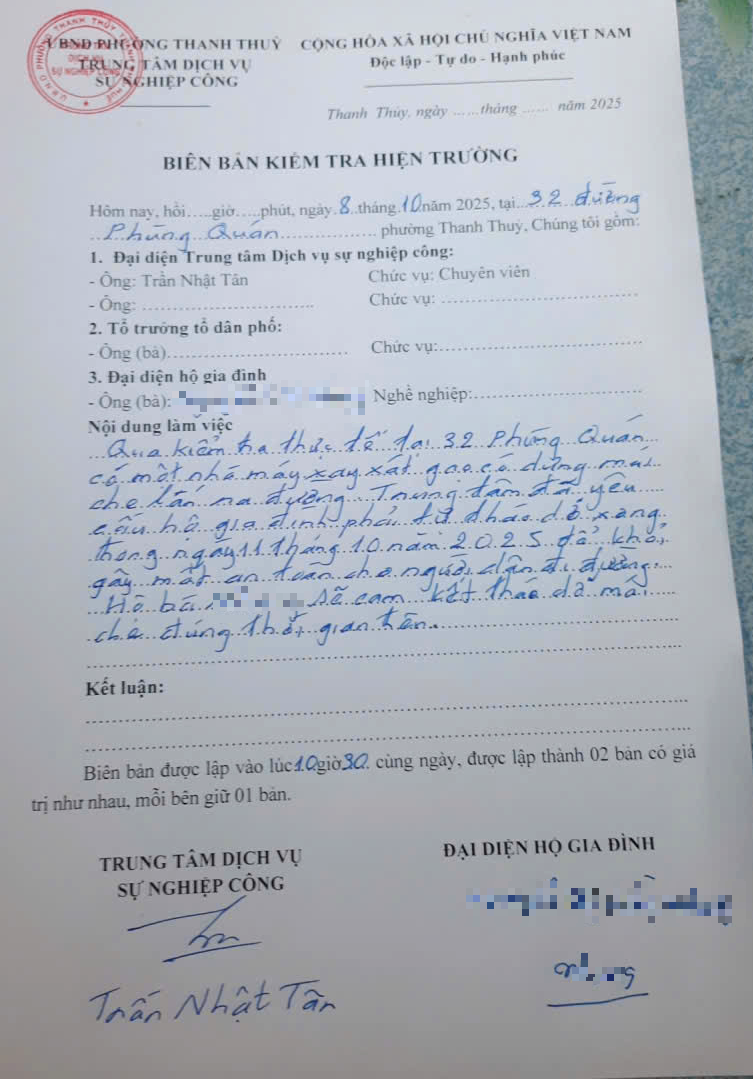 UBND PHƯỜNG THANH THUỶ
TRUNG TÂM DỊCH VỤ
SỰ NGHIỆP CÔNG
CỘNG HÒA XÃ HỘI CHỦ NGHĨA VIỆT NAM
Độc lập - Tự do - Hạnh phúc
Thanh Thủy, ngày ......tháng ...... năm 2025
BIÊN BẢN KIỂM TRA HIỆN TRƯỜNG
Hôm nay, hồi.....giờ.....phút, ngày 8 tháng 10 năm 2025, tại 32 đường
Phùng Quán phường Thanh Thuỷ, Chúng tôi gồm:
1. Đại diện Trung tâm Dịch vụ sự nghiệp công:
- Ông: Trần Nhật Tân Chức vụ: Chuyên viên
- Ông: Chức vụ:
2. Tổ trưởng tổ dân phố:
- Ông (bà) Chức vụ:
3. Đại diện hộ gia đình
- Ông (bà): Nghề nghiệp:
Nội dung làm việc
Qua kiểm tra thực tế tại 32 Phùng Quán
có một nhà máy xay xát gạo có dựng mái
che lấn ra đường. Trung tâm đã yêu
cầu hộ gia đình phải tự tháo dở xong
trong ngày 11 tháng 10 năm 2025 để khỏi
gây mất an toàn cho người dân đi đường.
Hộ bà sẽ cam kết tháo dở mái
che đúng thời gian trên.
Kết luận:
Biên bản được lập vào lúc 10 giờ 30 cùng ngày, được lập thành 02 bản có giá
trị như nhau, mỗi bên giữ 01 bản.
TRUNG TÂM DỊCH VỤ
SỰ NGHIỆP CÔNG
ĐẠI DIỆN HỘ GIA ĐÌNH
Trần Nhật Tân